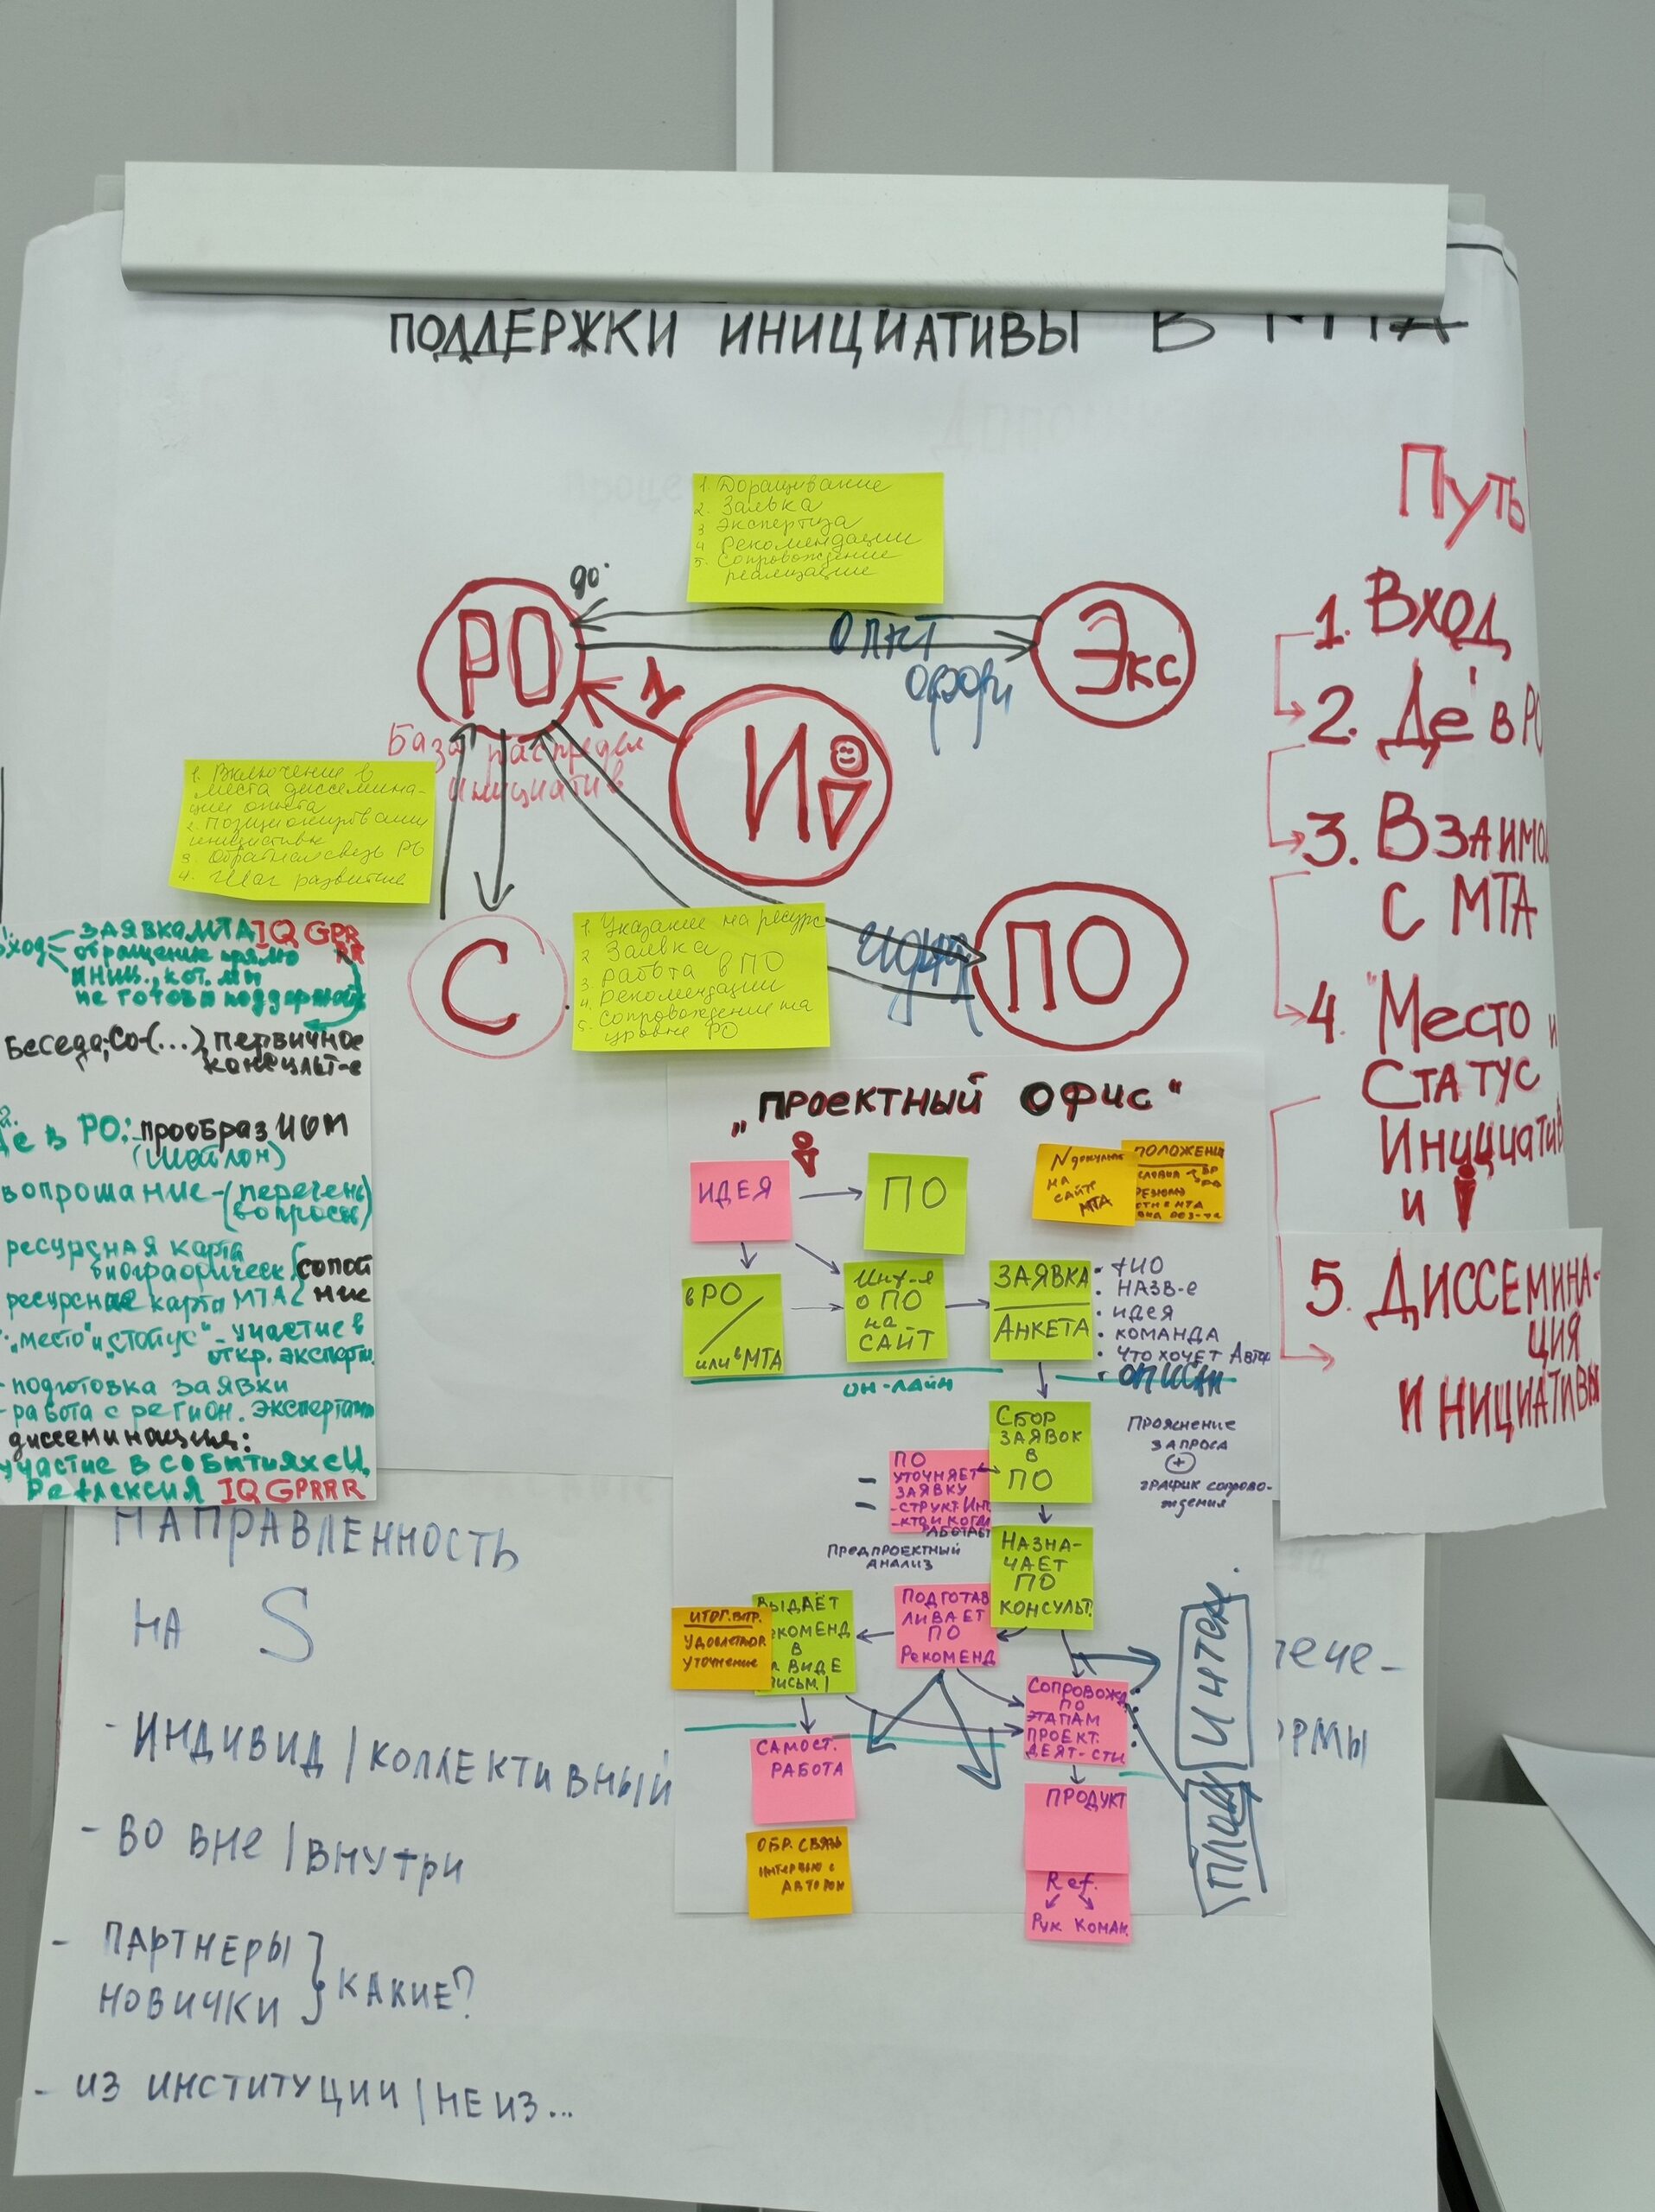 ПОДДЕРЖКИ ИНИЦИАТИВЫ В МТА
1. Доращивание
2. Заявка
3 Экспертиза
4 Рекомендации
5. Сопровождение
реализации
до.
РО
Экс
1
И
База распредел
инициатив
1. Включение в
места диссемина-
ции опыта
2. Позиционирование
инициативы
3. Обратная связь РО
4. Шаг развития
С
1. Указание на ресурс
2 Заявка
3. работа в ПО
4. рекомендации
5. сопровождение на
уровне РО
ПО
Путь
1. Вход
2. Де в РО
3. Взаимо
с МТА
4. "Место и
Статус
Инициатив
и
5. ДИССЕМИНА-
ЦИЯ
ИНИЦИАТИВЫ
заявка МТА IQ GPR
RR
вход
обращение прямо
иниц., кот. мы
не готовы поддержать
Беседа, Со-(...), первичное
консульт-е
2.
Де в РО: прообраз ИОМ
(шаблон)
вопрошание - (перечень
вопросы)
ресурсная карта
биографическ
ресурсная карта МТА
"место" и "статус" - участие в
откр. эксперти.
- подготовка заявки
- работа с регион. экспертами
диссеминация:
участие в событиях СИ,
Рефлексия IQ GPRRR
„ПРОЕКТНЫЙ ОФИС“
ИДЕЯ
ПО
N документ
на
сайте
МТА
ПОЛОЖЕНИ
в РО
или в МТА
Инф-я
о ПО
на
САЙТ
ЗАЯВКА
АНКЕТА
• ФИО
• НАЗВ-е
• идея
• КОМАНДА
• ЧТО ХОЧЕТ Автор
ОН-ЛАЙН
СБОР
ЗАЯВОК
В
ПО
Прояснение
ЗАПРОСА
+
ГРАФИК сопрово-
ждения
ПО
УТОЧНЯЕТ
ЗАЯВКУ
- СТРУКТ. ИНТ.
- КТО И КОГДА
РАБОТАЕТ
ПРЕДПРОЕКТНЫЙ
АНАЛИЗ
НАЗНА-
ЧАЕТ
ПО
КОНСУЛЬТ.
ИТОГ. ВСТР.
УДОВЛЕТВОР.
УТОЧНЕНИЕ
ВЫДАЁТ
РЕКОМЕНД
В
ВИДЕ
ПИСЬМ.
ПОДГОТАВ
ЛИВАЕТ
ПО
РЕКОМЕНД
СОПРОВОЖД.
ПО
ЭТАПАМ
ПРОЕКТ.
ДЕЯТ-СТИ
САМОСТ.
РАБОТА
ПРОДУКТ
ОБР. СВЯЗЬ
ИНТЕРВЬЮ с
АВТОРОМ
Ref.
Рук Коман.
НАПРАВЛЕННОСТЬ
НА S
- ИНДИВИД / КОЛЛЕКТИВНЫЙ
- ВО ВНЕ / ВНУТРИ
- ПАРТНЕРЫ
НОВИЧКИ } КАКИЕ?
- ИЗ ИНСТИТУЦИИ / НЕ ИЗ...